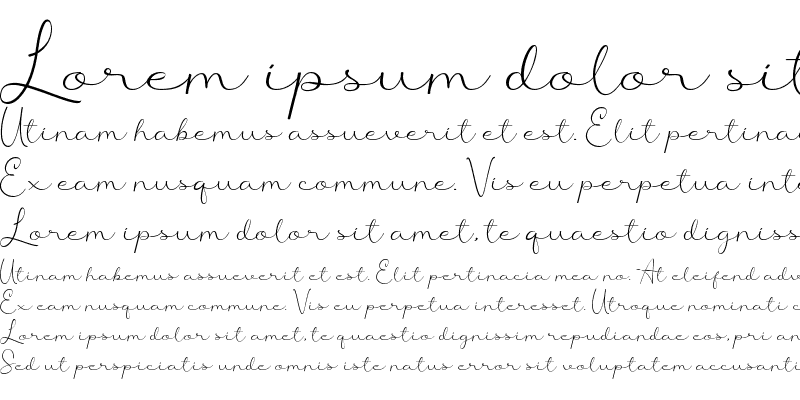 Lorem ipsum dolor sit
Utinam habemus assueverit et est. Elit pertina
Ex eam nusquam commune. Vis eu perpetua inte
Lorem ipsum dolor sit amet, te quaestio digniss
Utinam habemus assueverit et est. Elit pertinacia mea no. At eleifend adv
Ex eam nusquam commune. Vis eu perpetua interesset. Utroque nominati c
Lorem ipsum dolor sit amet, te quaestio dignissim repudiandae eos, pri an
Sed ut perspiciatis unde omnis iste natus error sit voluptatem accusanti